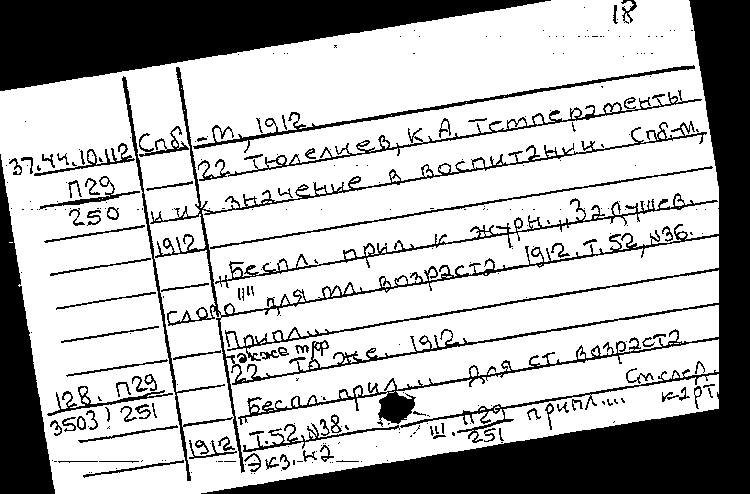 18
Спб.-М., 1912.
37.44.10.112 22. Тюлелиев, К.А. Темпераменты
П29
250 и их значение в воспитании. Спб.-М.,
1912
„Беспл. прил. к журн. „Задушев.
слово"" для мл. возраста. 1912. Т.52, №36.
Припл...
также т/ф
22. То же. 1912.
128. П29 „Беспл. прил... для ст. возраста
3503! 251
1912. Т.52, №38. См. след.
Экз. н2 Ш. П29 припл... карт.
251